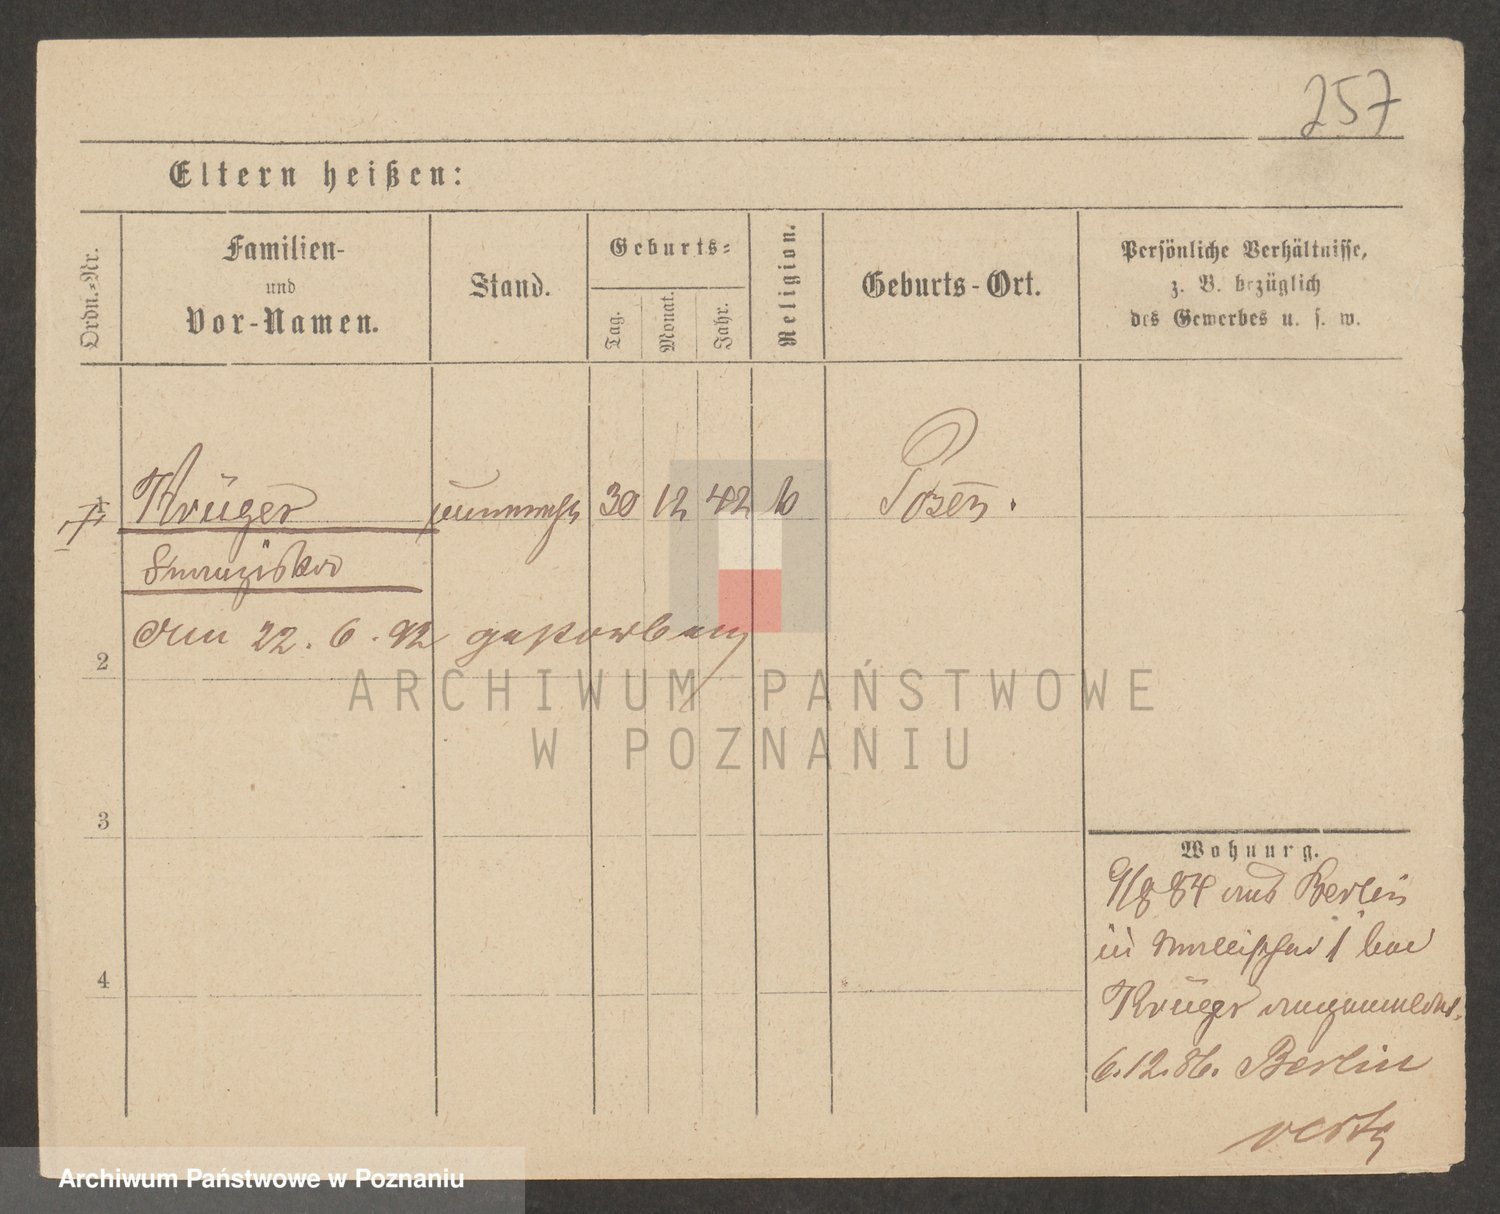 257
Eltern heißen:
Ordn.-Nr.
Familien-
und
Vor-Namen.
Stand.
Geburts-
Tag.
Monat.
Jahr.
Religion.
Geburts-Ort.
Persönliche Verhältnisse,
z. B. bezüglich
des Gewerbes u. s. w.
1 Krüger unverehl 30 12 42 k Posen.
Franziska
Am 22. 6. 92 gestorben
2
3
4
Wohnung.
9/8 84 aus Berlin
in Wallischei 1 bei
Krüger angemeldet.
6.12.86. Berlin
verzg
ARCHIWUM PAŃSTWOWE
W POZNANIU
Archiwum Państwowe w Poznaniu